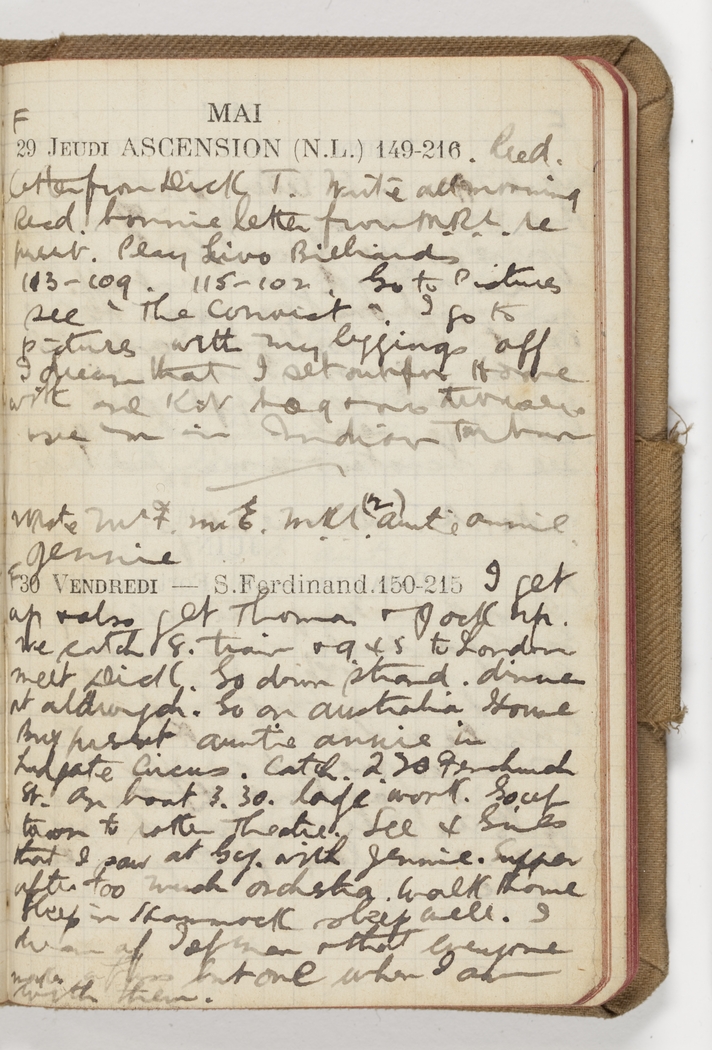 MAI
F
29 JEUDI ASCENSION (N.L.) 149-216. Recd.
letter from Dick T. Write all morning
Recd. bonnie letter from M.R.L. re
present. Play Billiards
113-109. 115-102. Go to Pictures
see "The Convict". I go to
pictures with my leggings off
I dream that I set out for Home
with one Kit bag & no trousers
in Indian Turban
Wrote Mr F. Mr E. MRL (2) auntie annie
Jennie
F
30 VENDREDI — S.Ferdinand.150-215 I get
up & also get Thomas & Jock up.
We catch 8. train & 9 45 to London
meet Dick. Go down strand. dinner
at aldwych. Go on australia House
Buy present auntie annie in
Ludgate Circus. Catch. 2.30 Fenchurch
St. on boat 3.30. work. Go up
town to Theatre. See 4
that I saw at with Jennie. Supper
after too much orchestra. Walk home
Sleep in Hammock sleep well. I
dream of & that everyone
but one when I am
with them.